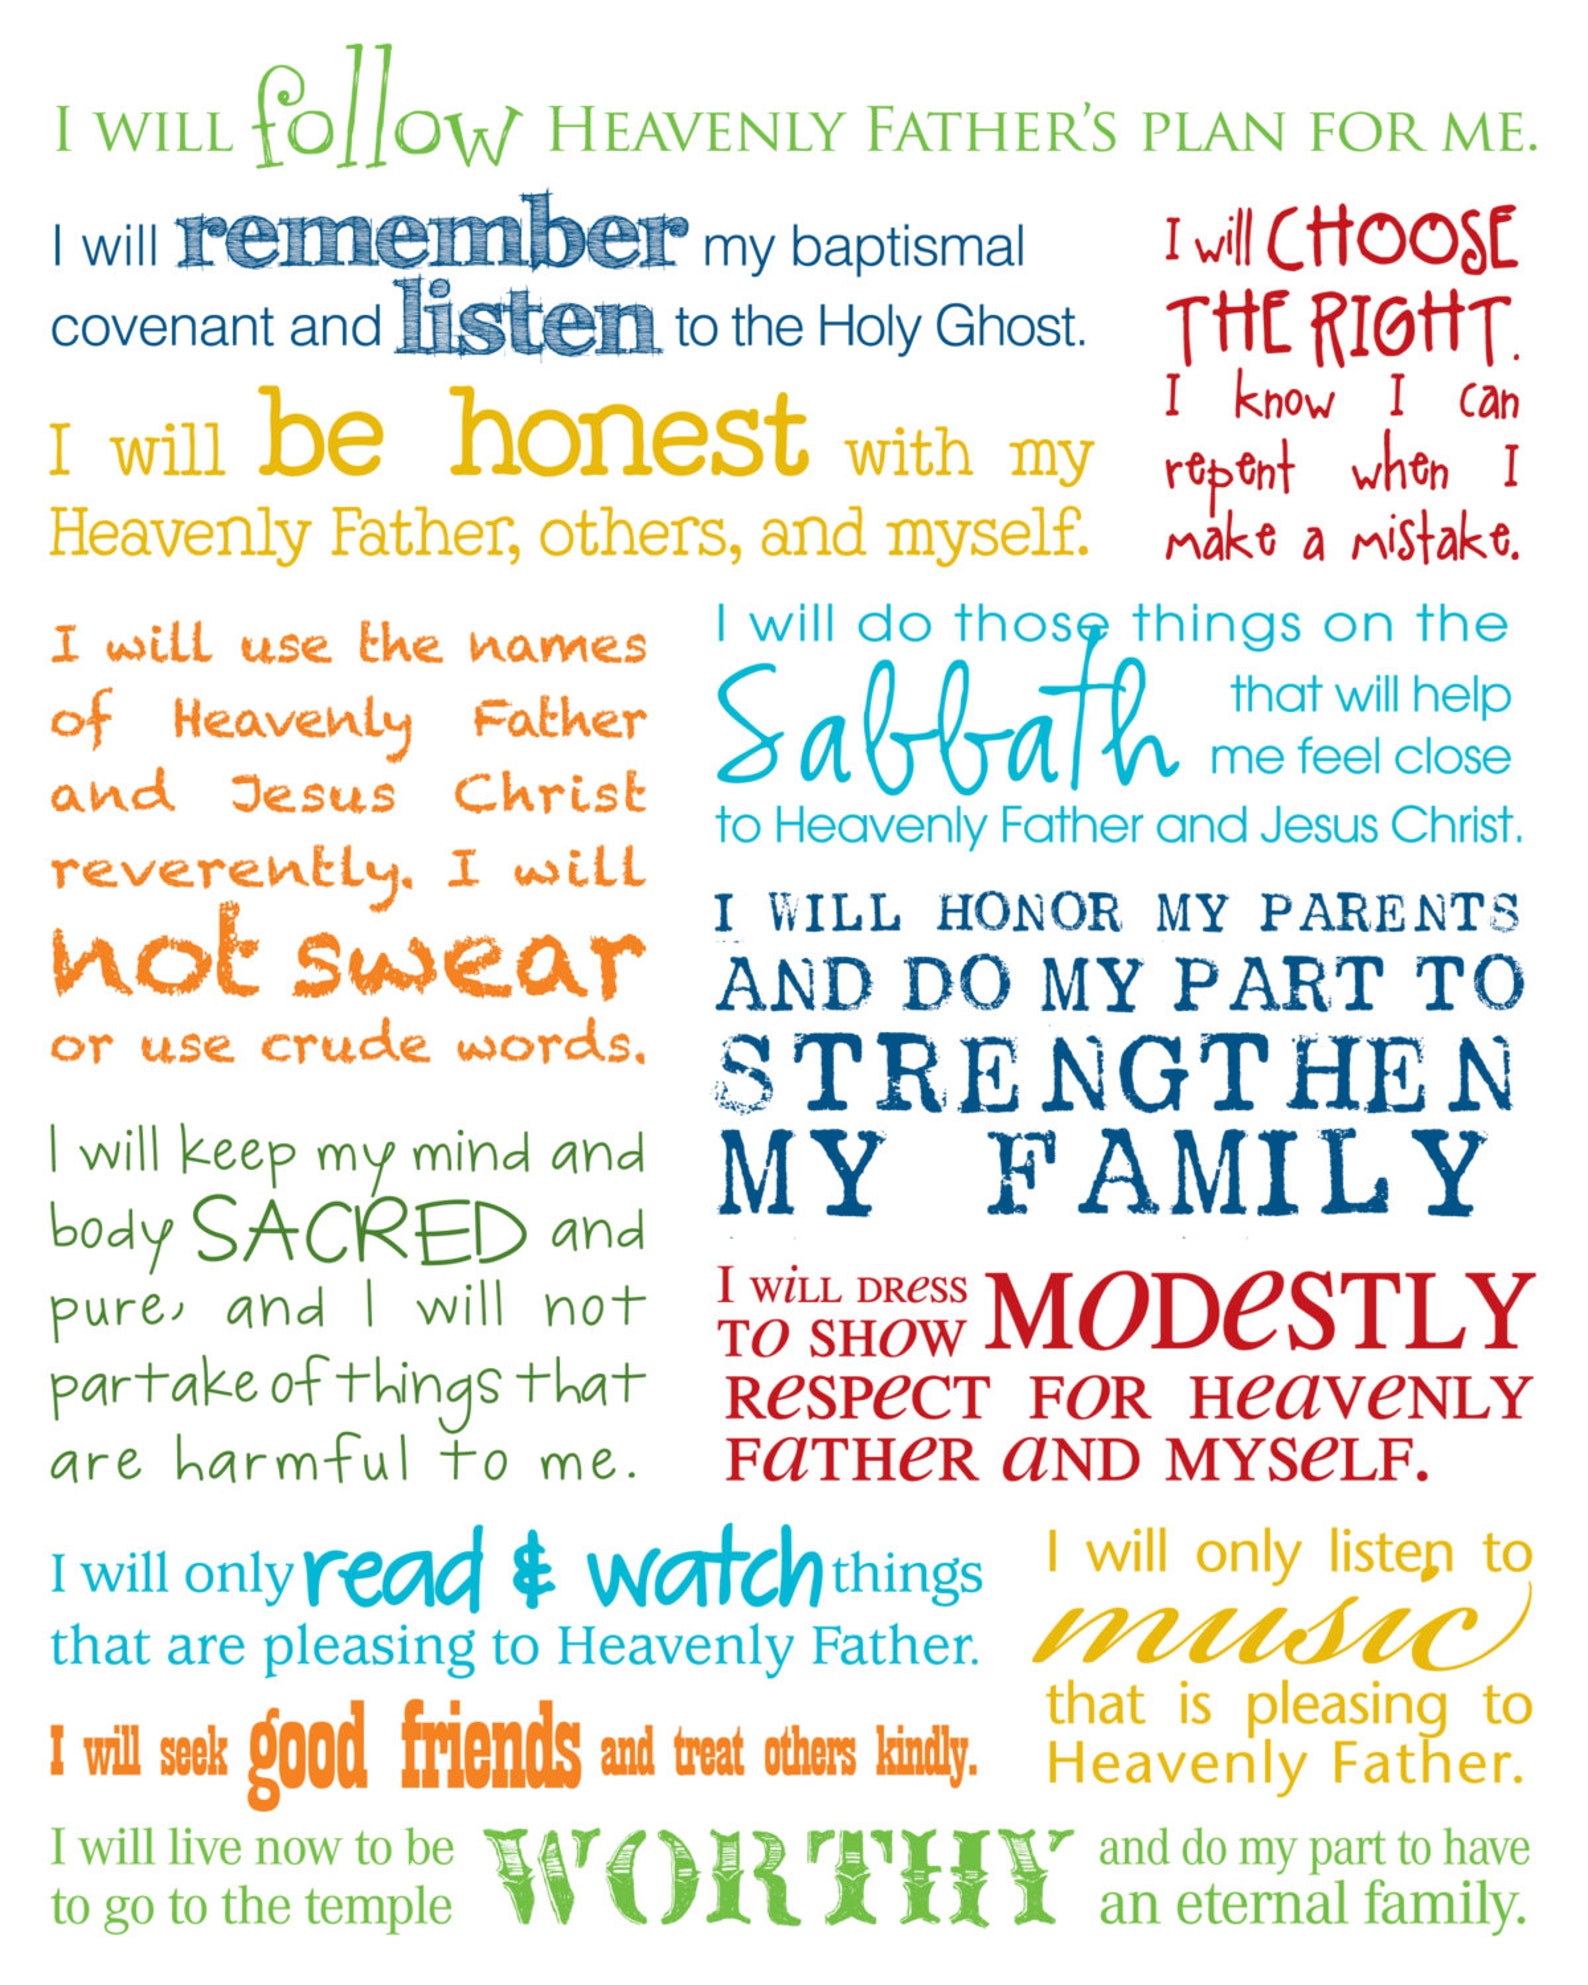 I WILL follow HEAVENLY FATHER'S PLAN FOR ME.
I will remember my baptismal
covenant and listen to the Holy Ghost.
I will CHOOSE
THE RIGHT.
I know I can
repent when I
make a mistake.
I will be honest with my
Heavenly Father, others, and myself.
I will use the names
of Heavenly Father
and Jesus Christ
reverently. I will
not swear
or use crude words.
I will do those things on the
Sabbath that will help
me feel close
to Heavenly Father and Jesus Christ.
I WILL HONOR MY PARENTS
AND DO MY PART TO
STRENGTHEN
MY FAMILY
I will keep my mind and
body SACRED and
pure, and I will not
partake of things that
are harmful to me.
I WiLL DReSS
TO SHOW MODeSTLY
ReSPeCT FOR HeaVeNLY
FaTHeR aND MYSeLF.
I will only read & watch things
that are pleasing to Heavenly Father.
I will only listen to
music
that is pleasing to
Heavenly Father.
I will seek good friends and treat others kindly.
I will live now to be
to go to the temple WORTHY and do my part to have
an eternal family.